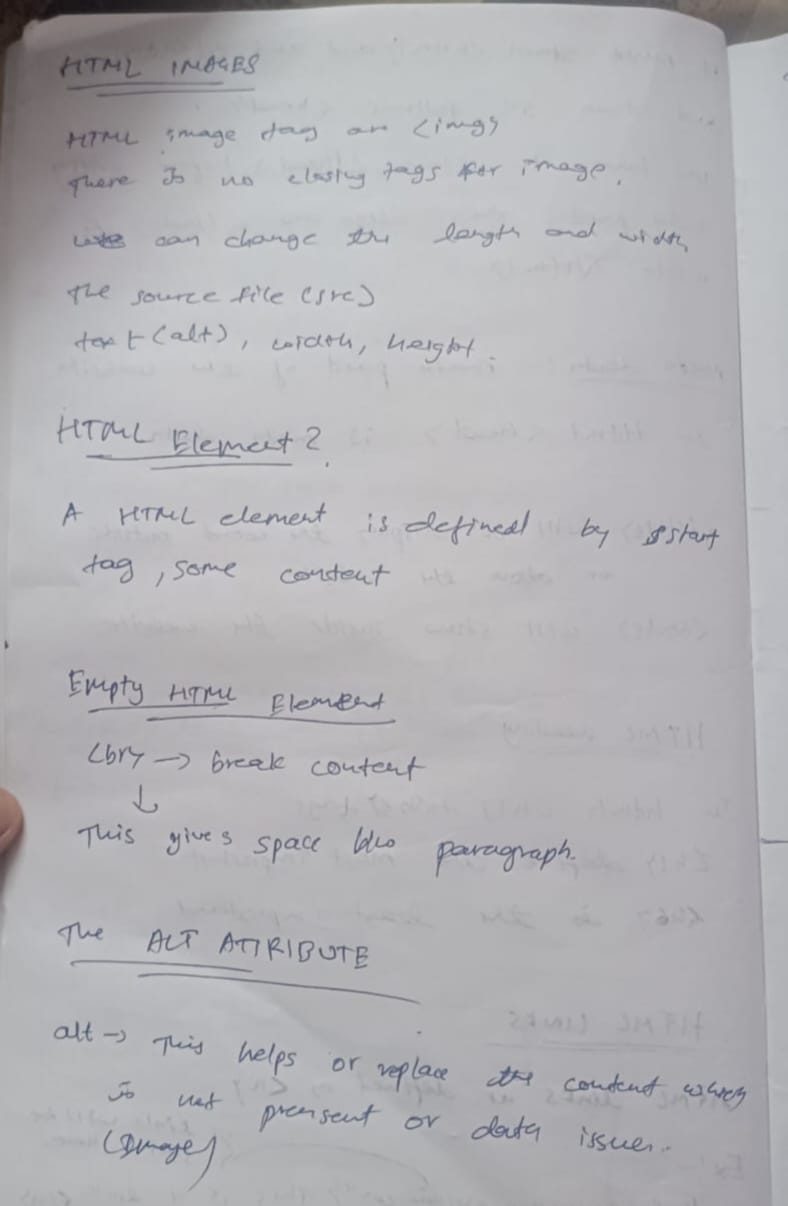 HTML IMAGES
HTML image tag are <img>
There Is no closing tags for image.
we can change the length and width
The source file (src)
text (alt), width, height.
HTML Element?
A HTML element is defined by start
tag, some content
Empty HTML Element
<br> → break content
↓
This gives space b/w paragraph.
The ALT ATTRIBUTE
alt → This helps or replace the content which
Is not prensent or data issues..
(Image)